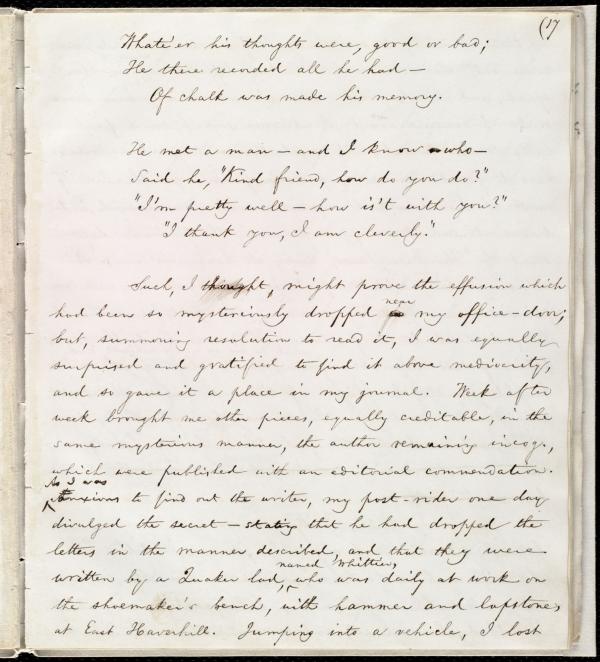 (17
Whate'er his thoughts were, good or bad;
He there recorded all he had —
Of chalk was made his memory.
He met a man — and I know who —
Said he, "Kind friend, how do you do?"
"I'm pretty well — how is't with you?"
"I thank you, I am cleverly."
Such, I thought, might prove the effusion which
had been so mysteriously dropped near my office-door;
but, summoning resolution to read it, I was equally
surprised and gratified to find it above mediocrity,
and so gave it a place in my journal. Week after
week brought me other pieces, equally creditable, in the
same mysterious manner, the author remaining incog.,
which were published with an editorial commendation.
As I was
anxious to find out the writer, my post-rider one day
divulged the secret — stating that he had dropped the
letters in the manner described, and that they were
named Whittier,
written by a Quaker lad, who was daily at work on
the shoemaker's bench, with hammer and lapstone,
at East Haverhill. Jumping into a vehicle, I lost